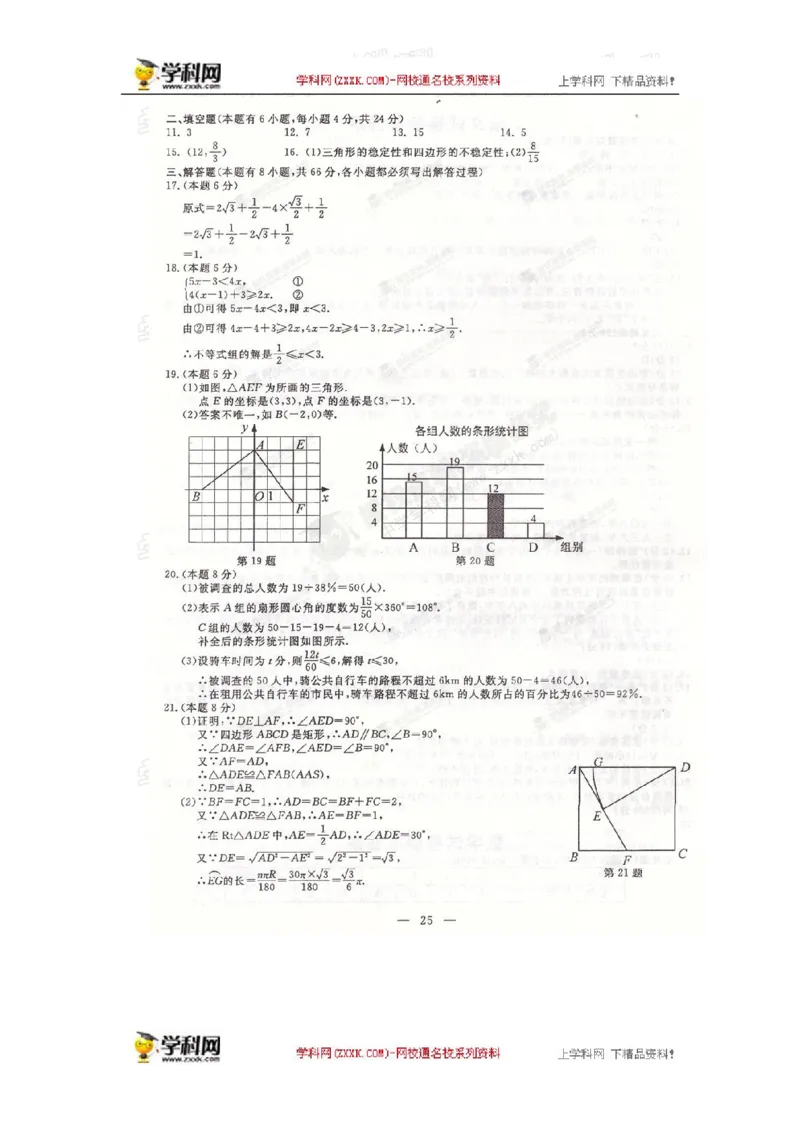 学科网
www.zxxk.com
学科网(ZXXK.COM)-网校通名校系列资料
上学科网 下精品资料!
二、填空题(本题有6小题,每小题4分,共24分)
11. 3 12. 7 13. 15 14. 5
15. (12, 8/3) 16. (1)三角形的稳定性和四边形的不稳定性;(2) 8/15
三、解答题(本题有8小题,共66分,各小题都必须写出解答过程)
17. (本题6分)
原式=2√3+1/2-4×√3/2+1/2
=2√3+1/2-2√3+1/2
=1.
18. (本题6分)
{5x-3<4x, ①
4(x-1)+3≥2x. ②
由①可得5x-4x<3,即x<3.
由②可得4x-4+3≥2x,4x-2x≥4-3,2x≥1,∴x≥1/2.
∴不等式组的解是1/2≤x<3.
19. (本题6分)
(1)如图,△AEF为所画的三角形.
点E的坐标是(3,3),点F的坐标是(3,-1).
(2)答案不唯一,如B(-2,0)等.
y
A
E
B
O
1
x
F
第19题
各组人数的条形统计图
人数(人)
20
16
12
8
4
15
19
12
4
A B C D 组别
第20题
20. (本题8分)
(1)被调查的总人数为19÷38%=50(人).
(2)表示A组的扇形圆心角的度数为15/50×360°=108°.
C组的人数为50-15-19-4=12(人),
补全后的条形统计图如图所示.
(3)设骑车时间为t分,则12t/60≤6,解得t≤30,
∴被调查的50人中,骑公共自行车的路程不超过6km的人数为50-4=46(人),
∴在租用公共自行车的市民中,骑车路程不超过6km的人数所占的百分比为46÷50=92%.
21. (本题8分)
(1)证明:∵DE⊥AF,∴∠AED=90°,
又∵四边形ABCD是矩形,∴AD∥BC,∠B=90°,
∴∠DAE=∠AFB,∠AED=∠B=90°,
又∵AF=AD,
∴△ADE≌△FAB(AAS),
∴DE=AB.
(2)∵BF=FC=1,∴AD=BC=BF+FC=2,
又∵△ADE≌△FAB,∴AE=BF=1,
∴在Rt△ADE中,AE=1/2AD,∴∠ADE=30°,
又∵DE=√AD²-AE²=√2²-1²=√3,
∴EG的长=nπR/180=30π×√3/180=√3/6π.
A
G
D
E
B
F
C
第21题
— 25 —
学科网
www.zxxk.com
学科网(ZXXK.COM)-网校通名校系列资料
上学科网 下精品资料!